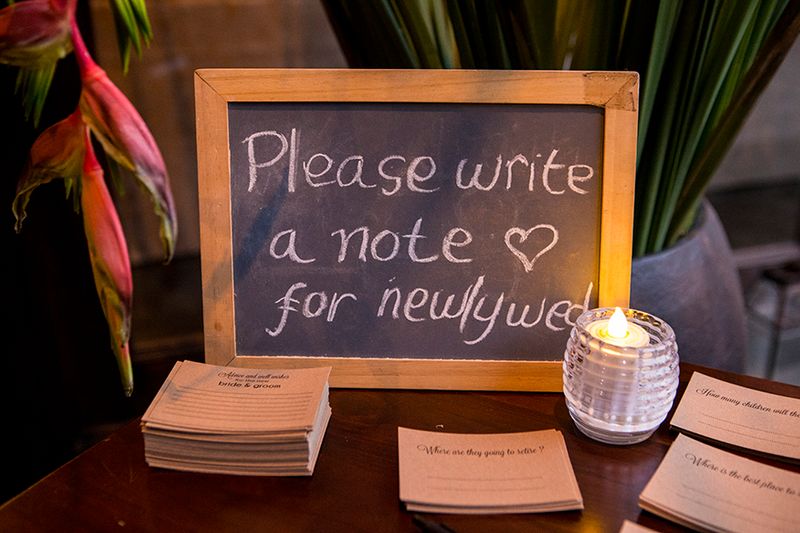 Please write
a note ♡
for newlywed
Advice and well wishes
for the new
bride & groom
Where are they going to retire?
How many children will the
Where is the best place to